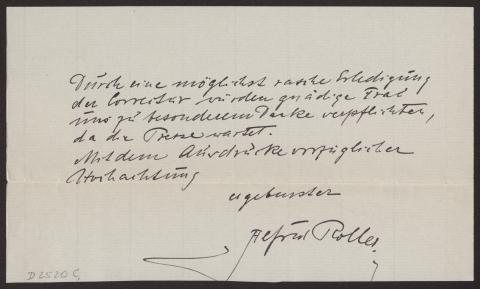 Durch eine möglichst rasche Erledigung
der Correctur würden gnädige Frau
uns zu besonderem Danke verpflichten,
da die Presse wartet.
Mit dem Ausdrucke vorzüglicher
Hochachtung
ergebenster
Alfred Roller
D2520C